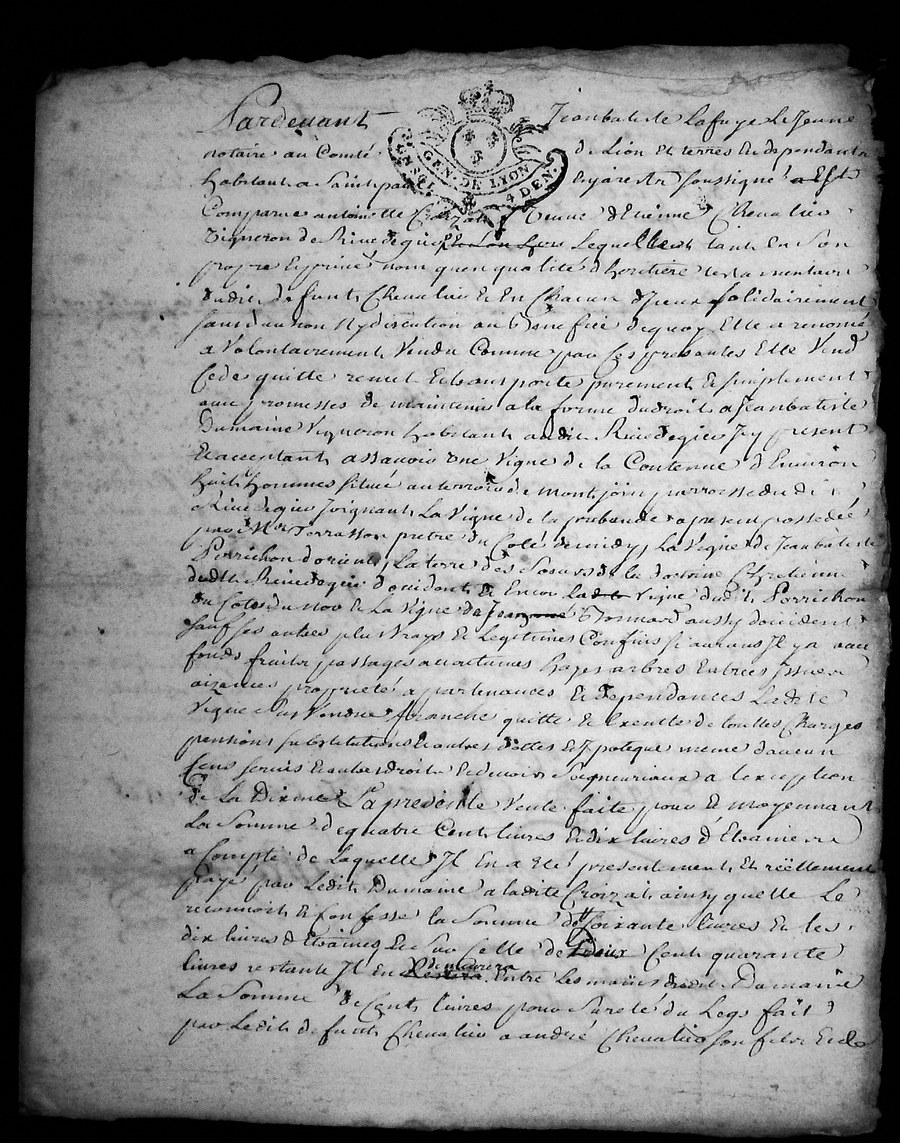 Pardevant Jeanbatiste Lafuge Le Jeune
notaire au Comté de Lion Et terres En dependantes
GEN. DE LYON
4 DEN.
habitant a Saint Enjarest soussigné
Comparue antoinette Croizat veuve d'Etienne Chevalier
vigneron de Rivedegier Lequelle tant En Son
propre Et privé nom quen qualité d'heritiere testamentaire
dudit defunt Chevalier Et En Chacun d'Jceux solidairement
sans division ny discution au Benefice dequoy Elle a renoncé
a volontairement vendu Comme par Ces presantes Elle vend
Cede quitte remet Et transporte purement Et simplement
avec promesses de maintenir a la forme du droit a Jeanbatiste
Dumaine vigneron habitant audit Rivedegier Jcy present
Et acceptant assavoir une vigne de la Contenue d'Environ
huit hommes situé au terroir de Montjoin parroisse dudit
Rivedegier Joignant La vigne de la prebande apresent possedée
par Mr Terrasson pretre du Coté de midy, La vigne de Jeanbatiste
Perrichon d'orient, La terre des Soeurs de la doctrine Chretienne
dudit Rivedegier d'occident Et Encor La vigne dudit Perrichon
du Coté du nor Et La vigne de Bonnard aussy d'occident
sauf ses autres plus vrays Et Legitimes Confins si aucuns Jl y a avec
fonds fruits passages accoutumés hayes arbres Entrées Jssues
aizances proprieté apartenances Et dependances Ladite
vigne Sus vendue franche quitte Et Exente de touttes Charges
pensions substitutions Et autres dettes Et Jpoteque meme d'aucun
Cens servis Et autres droits Et devoirs Seigneuriaux a l'exception
de La Dixme La presente vente faite pour Et moyennant
La Somme de quatre Cent livres Et dix livres d'Etraines
a Compte de Laquelle Jl En a Eté presentement Et réellement
payé par Ledit Dumaine a ladite Croizat ainsy quelle Le
reconnoit Et Confesse la Somme de soixante livres Et les
dix livres d'Etraines, Et Sur Celle de deux Cent quarante
livres restante Jl En demeurera Entre Les mains dudit Dumaine
La Somme de Cent livres pour Sureté du Legs fait
par Ledit defunt Chevalier a andré Chevalier son fils Et de